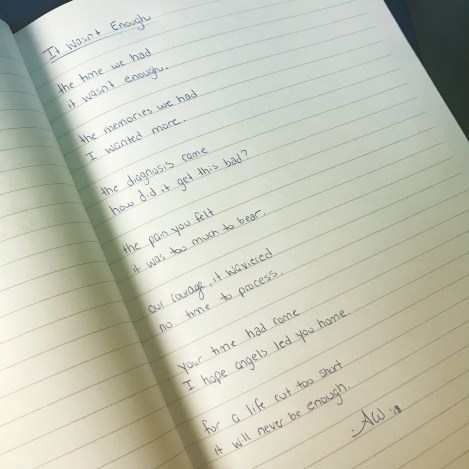 It Wasn't Enough
the time we had
it wasn't enough.
the memories we had
I wanted more.
the diagnosis came
how did it get this bad?
the pain you felt
it was too much to bear.
our courage, it waviered
no time to process.
your time had come
I hope angels led you home
for a life cut too short
it will never be enough.
-AW '18